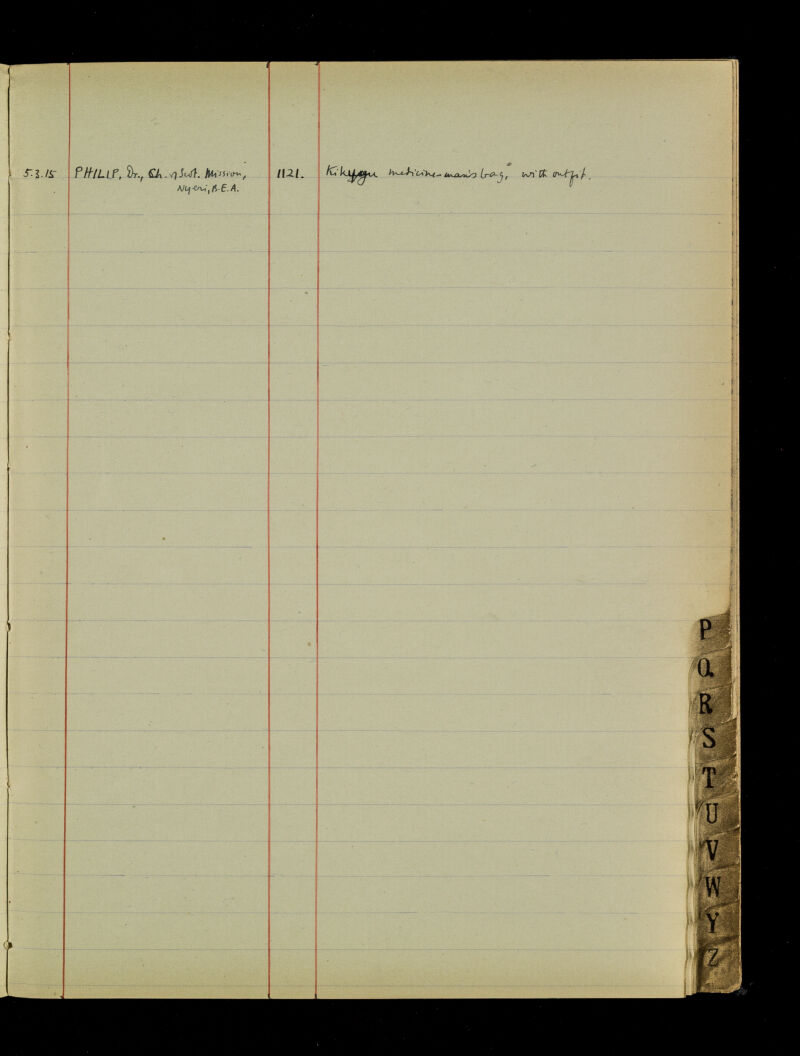 5.3.15 PHILIP, Dr., Ch. of Scot. Mission, 1121. Kikuyu medicine-man's bag, with outfit.
Nyeri, B.E.A.
P
Q
R
S
T
U
V
W
Y
Z